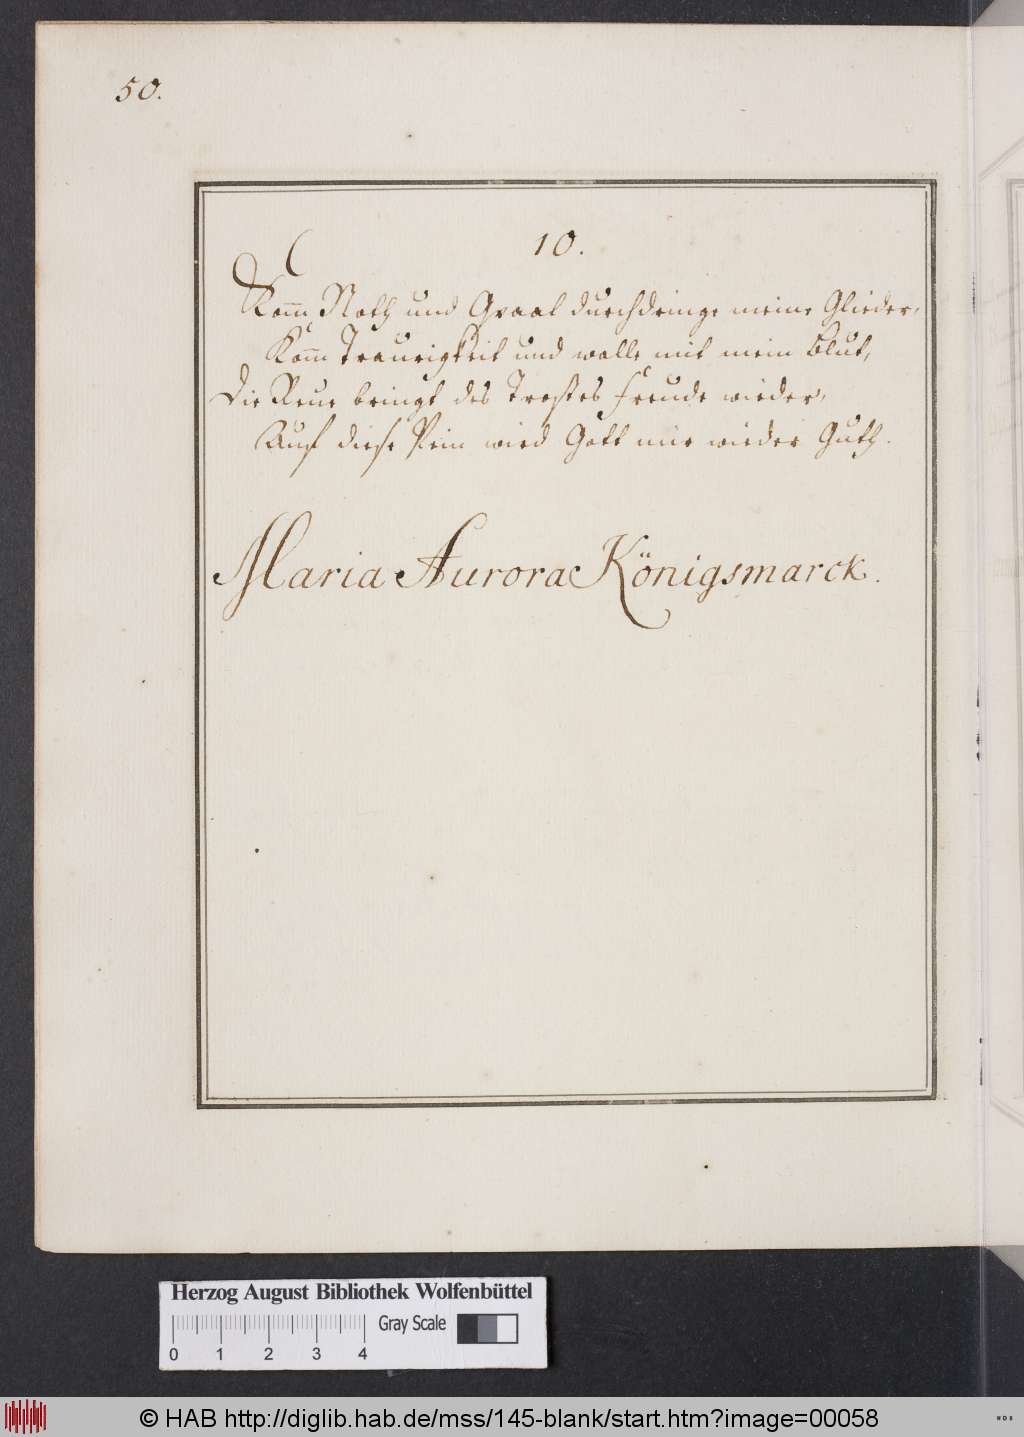 50.
10.
Komm Noth und Qvaal durchdringe meine Glieder,
Komm Traurigkeit und walle mit mein Blut,
Die Reue bringt des Trostes Freude wieder,
Auf diese Pein wird Gott mir wieder Guth.
Maria Aurora Königsmarck.
Herzog August Bibliothek Wolfenbüttel
Gray Scale
0 1 2 3 4
© HAB http://diglib.hab.de/mss/145-blank/start.htm?image=00058